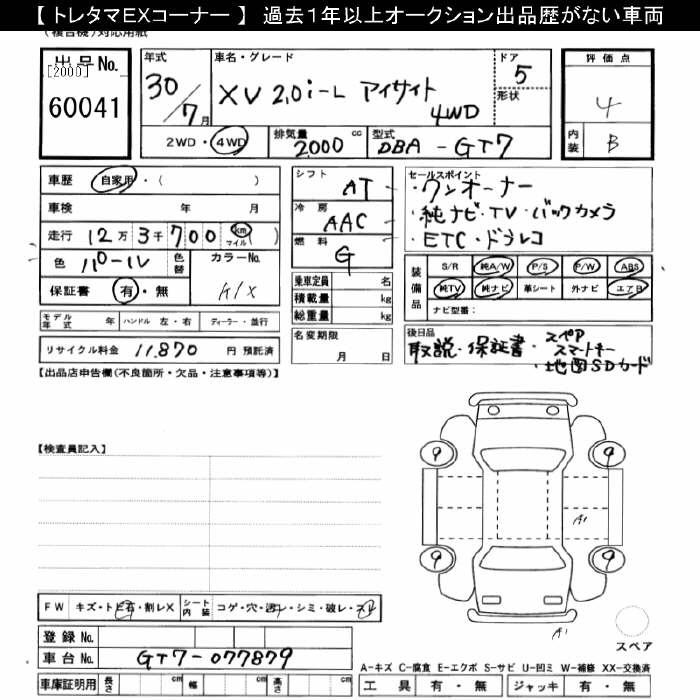 【 トレタマEXコーナー 】 過去1年以上オークション出品歴がない車両
(複合機)対応用紙
出品No.
[2000]
60041
年式
30/7月
車名・グレード
XV 2,0i-L アイサイト
4WD
ドア
5
形状
評価点
4
内装
B
2WD・4WD
排気量
2000 cc
型式
DBA-GT7
車歴 自家用・( )
車検 年 月
走行 12万3千700 km マイル ( )
色 パール 色替 カラーNo.
保証書 有・無 K1X
モデル年式 年 ハンドル 左・右 ディーラー・並行
リサイクル料金 11,870 円 預託済
シフト AT
冷房 AAC
燃料 G
乗車定員 名
積載量 kg
総重量 kg
名変期限
月 日
セールスポイント
・ワンオーナー
・純ナビ・TV・バックカメラ
・ETC・ドラレコ
装備品
S/R 純A/W P/S P/W ABS
純TV 純ナビ 革シート 外ナビ エアB
ナビ型番:
後日品
取説・保証書・スペアスマートキー
・地図SDカード
【出品店申告欄(不良箇所・欠品・注意事項等)】
【検査員記入】
9 9
A1
9 9
A1
スペア
FW キズ・トビ石・割レX シート内装 コゲ・穴・汚レ・シミ・破レ・スレ
登録No.
車台No. GT7-077879
車庫証明用 長さ cm 幅 cm 高さ cm
A-キズ C-腐食 E-エクボ S-サビ U-凹ミ W-補修 XX-交換済
工具 有・無 ジャッキ 有・無